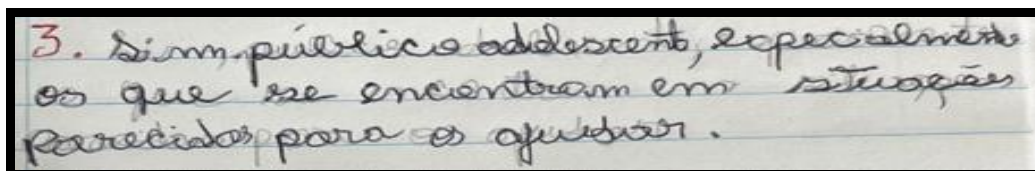 3. Sim, público adolescent, especialmente
os que se encontram em situações
parecidas para os ajudar.